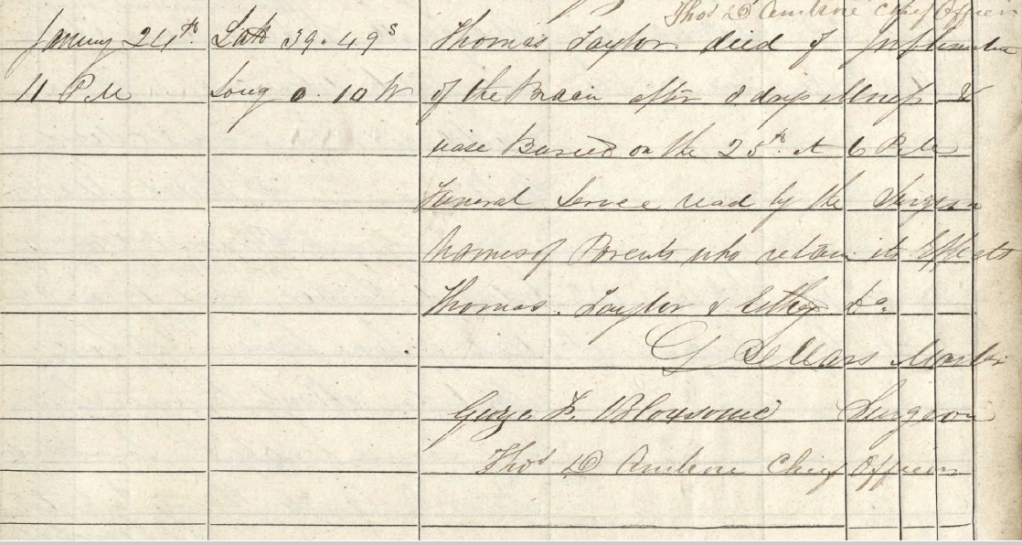 Thos D Ambrose Chief Officer
January 24th. Latt 39.49s Thomas Taylor died of Inflamation
11 P.M Long 0.10 W of the Brain after 8 days illness &
was Buried on the 25th. at 6 P.M
Funeral Service read by the Surgeon
Names of Parents who retain its Effects
Thomas. Taylor & Do.
Master
George F. Bloxsome Surgeon
Thos D Ambrose Chief Officer